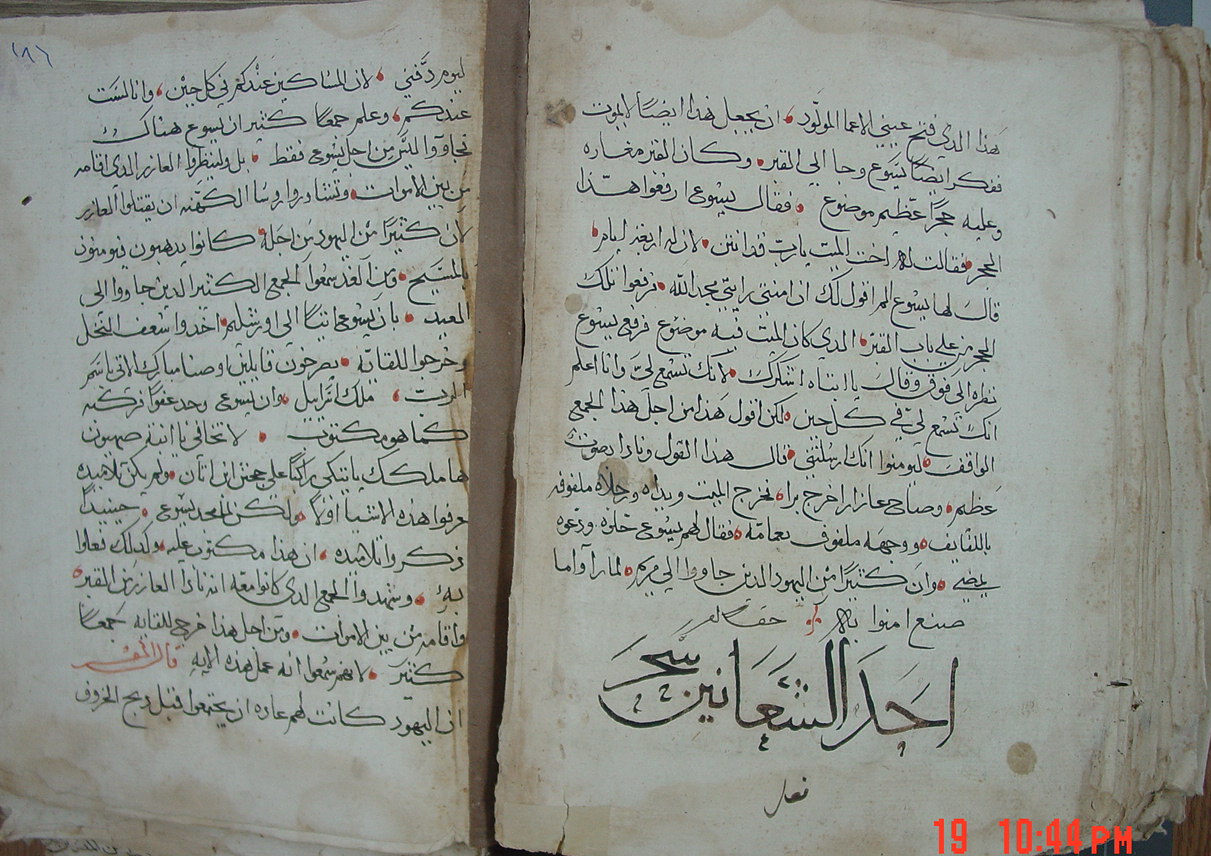 هذا الدي فتح عيني الاعما المولود ان يجعل هذا ايضًا لا يموت
ففكر ايضًا يسوع وجا الي القبر وكان القبر مغاره
وعليه حجرًا عظيم موضوع فقال يسوع ارفعوا هذا
الحجر فقالت له اخت الميت يارب قد انتن لان له اربعة ايام
قال لها يسوع الم اقول لك ان امنتي رايتي مجد الله فرفعوا تلك
الحجر من علي باب القبر الدي كان الميت فيه موضوع فرفع يسوع
نظره الى فوق وقال يا ابتاه اشكرك لانك تسمع لي وانا اعلم
انك تسمع لي في كل حين لكن اقول هذا من اجل هذا الجمع
الواقف ليومنوا انك ارسلتني قال هذا القول ونادا بصوت
عظيم وصاح عازار اخرج برا فخرج الميت ويداه ورجلاه ملفوفه
باللفايف ووجهه ملفوف بعمامه فقال لهم يسوع حلوه ودعوه
يمضي وان كثيرًا من اليهود الدين جاووا الي مريم لما راوا ما
صنع امنوا به حقا
احد الشعانين سحر
ليوم دفني لان المساكين عندكم في كل حين وانا لست
عندكم وعلم جمعًا كثير ان يسوع هناك
فجاووا ليس من اجل يسوع فقط بل ولينظروا العازر الدي اقامه
من بين الاموات وتشاوروا روسا الكهنه ان يقتلوا العازر
لان كثيرًا من اليهود من اجله كانوا يدهبون فيومنون
بالمسيح ومن الغد سمعوا الجمع الكثير الدين جاووا الي
العيد بان يسوع اتيًا الي اورشليم اخدوا سعف النخل
وخرجوا للقاه يصرخون قايلين اوصنا مبارك الاتي باسم
الرب ملك اسراييل وان يسوع وجد عفوًا فركبه
كما هو مكتوب لا تخافي يا ابنة صهيون
ها ملكك ياتيكي راكبًا علي جحش ابن اتان ولم يكن تلاميده
عرفوا هذه الاشيا اولًا ولكن لما مجد يسوع حينيدًا
دكروا تلاميده ان هذا مكتوب عليه وكدلك فعلوا
به وشهدوا الجمع الدي كانوا معه انه نادا العازر من القبر
واقامه من بين الاموات ومن اجل هذا خرج للقايه جمعًا
كثير لانهم سمعوا انه عمل هذه الايه قال المفسر
ان اليهود كانت لهم عاده ان يجتمعوا قبل دبح الخروف
19 10:44 PM